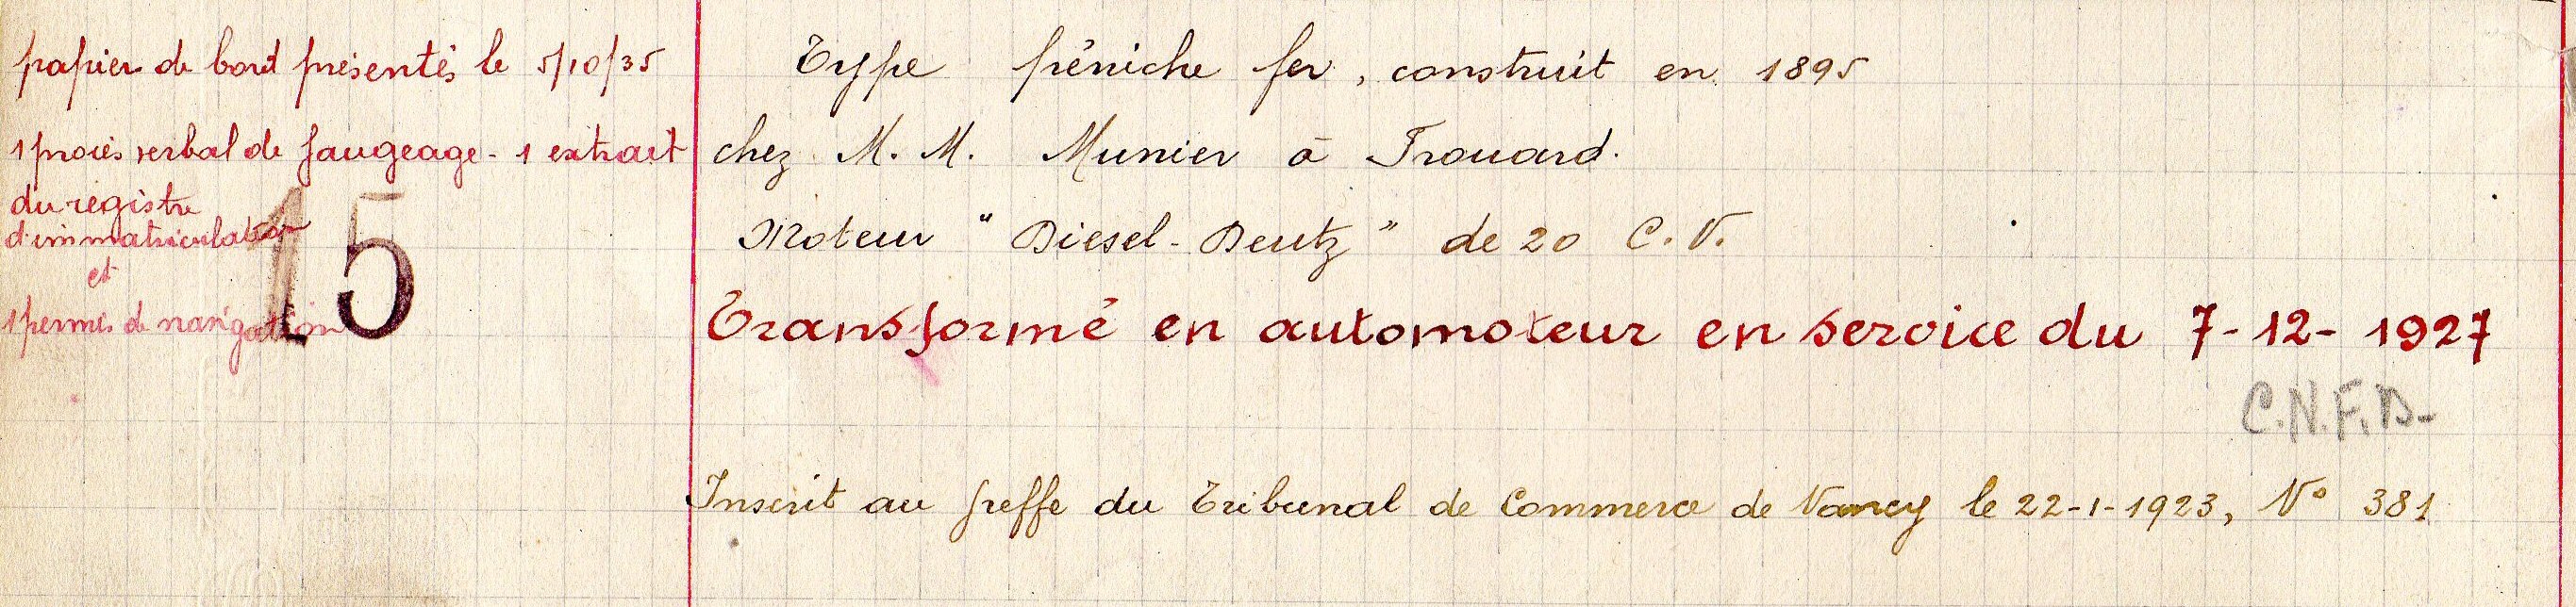 papier de bord présentés le 5/10/35
1 procès verbal de jaugeage - 1 extrait
du registre
d'immatriculation
et
1 permis de navigation
15
Type péniche fer, construit en 1895
chez M. M. Munier à Frouard.
Moteur "Diesel-Deutz" de 20 C.V.
Transformé en automoteur en service du 7-12-1927
C.N.F.D.
Inscrit au greffe du Tribunal de Commerce de Nancy le 22-1-1923, N° 381